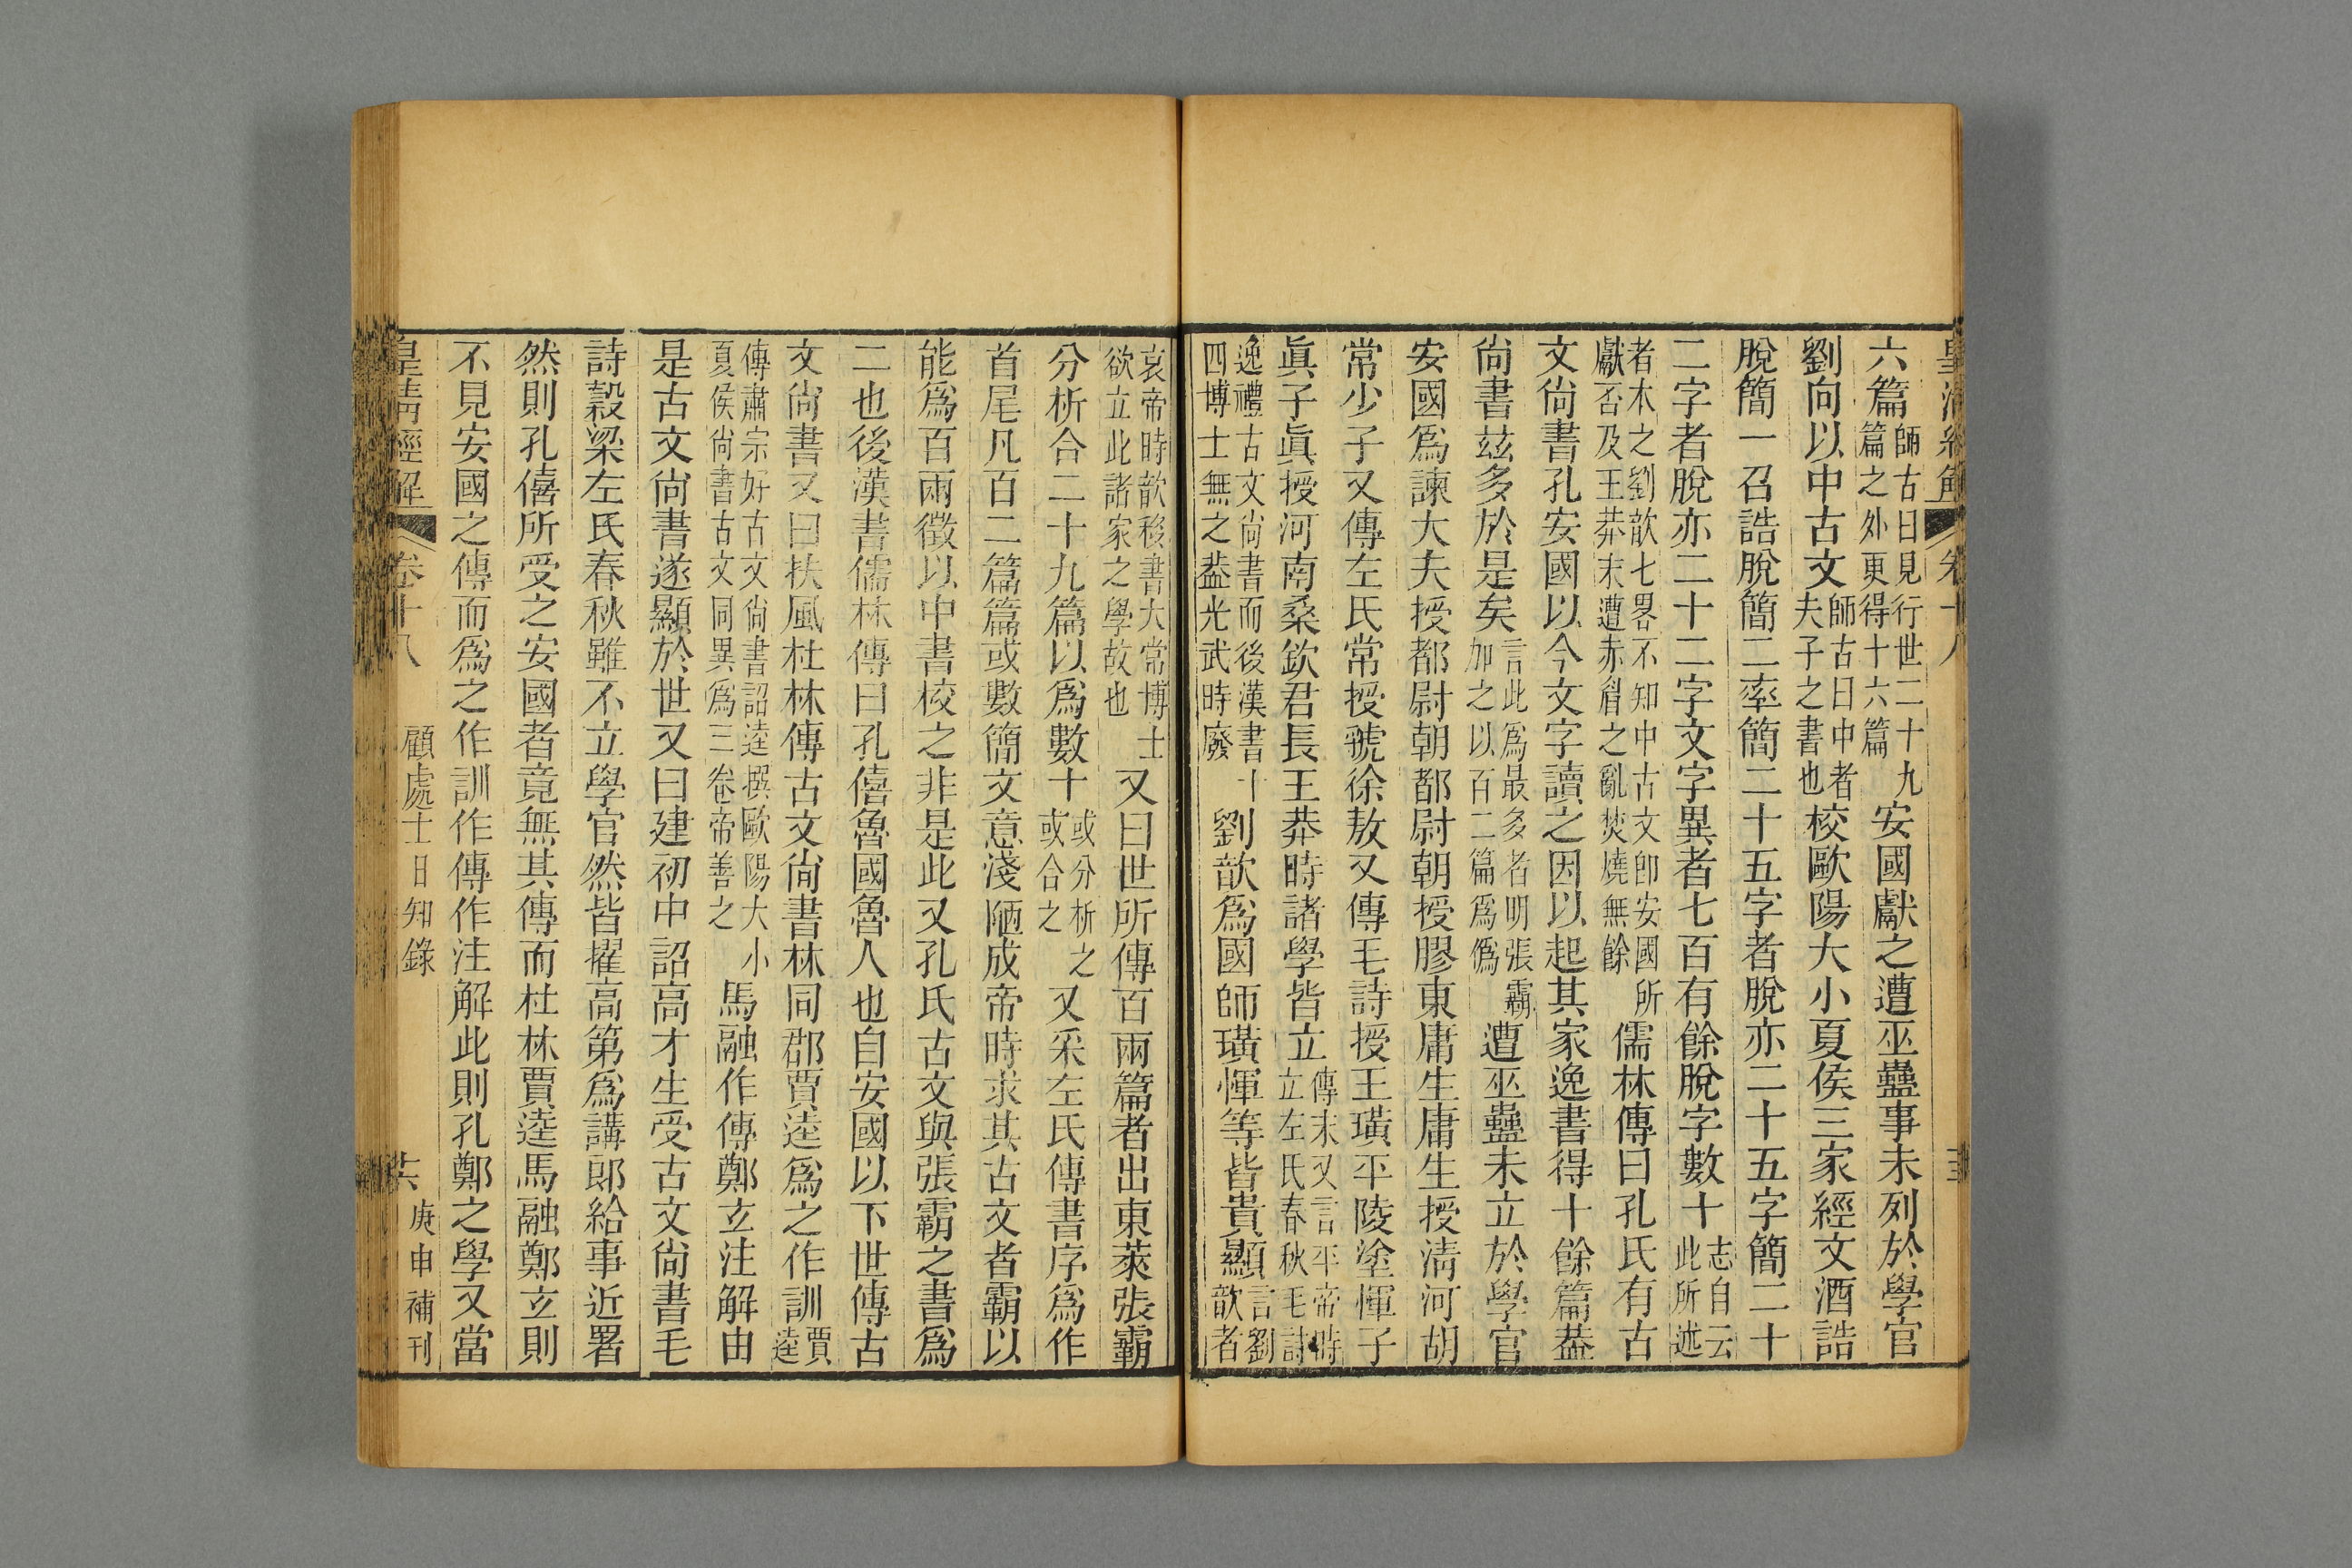 皇清經解 卷十八
六篇師古曰見行世二十九篇之外更得十六篇安國獻之遭巫蠱事未列於學官
劉向以中古文師古曰中者夫子之書也校歐陽大小夏侯三家經文酒誥
脫簡一召誥脫簡二率簡二十五字者脫亦二十五字簡二十
二字者脫亦二十二字文字異者七百有餘脫字數十志自云此所述
者本之劉歆七畧不知中古文卽安國所獻否及王莽末遭赤眉之亂焚燒無餘儒林傳曰孔氏有古
文尙書孔安國以今文字讀之因以起其家逸書得十餘篇葢
尙書兹多於是矣言此爲最多者明張霸加之以百二篇爲僞遭巫蠱未立於學官
安國爲諫大夫授都尉朝都尉朝授膠東庸生庸生授淸河胡
常少子又傳左氏常授虢徐敖又傳毛詩授王璜平陵塗惲子
眞子眞授河南桑欽君長王莽時諸學皆立傳末又言平帝時立左氏春秋毛詩
逸禮古文尙書而後漢書十四博士無之葢光武時廢劉歆爲國師璜惲等皆貴顯言劉歆者
哀帝時歆移書大常博士欲立此諸家之學故也又曰世所傳百兩篇者出東萊張霸
分析合二十九篇以爲數十或分析之或合之又采左氏傳書序爲作
首尾凡百二篇篇或數簡文意淺陋成帝時求其古文者霸以
能爲百兩徵以中書校之非是此又孔氏古文與張霸之書爲
二也後漢書儒林傳曰孔僖魯國魯人也自安國以下世傳古
文尙書又曰扶風杜林傳古文尙書林同郡賈逵爲之作訓賈逵
傳肅宗好古文尙書詔逵撰歐陽大小夏侯尙書古文同異爲三卷帝善之馬融作傳鄭玄注解由
是古文尙書遂顯於世又曰建初中詔高才生受古文尙書毛
詩穀梁左氏春秋雖不立學官然皆擢高第爲講郎給事近署
然則孔僖所受之安國者竟無其傳而杜林賈逵馬融鄭玄則
不見安國之傳而爲之作訓作傳作注解此則孔鄭之學又當
皇清經解 卷十八 顧處士日知錄 六 庚申補刊